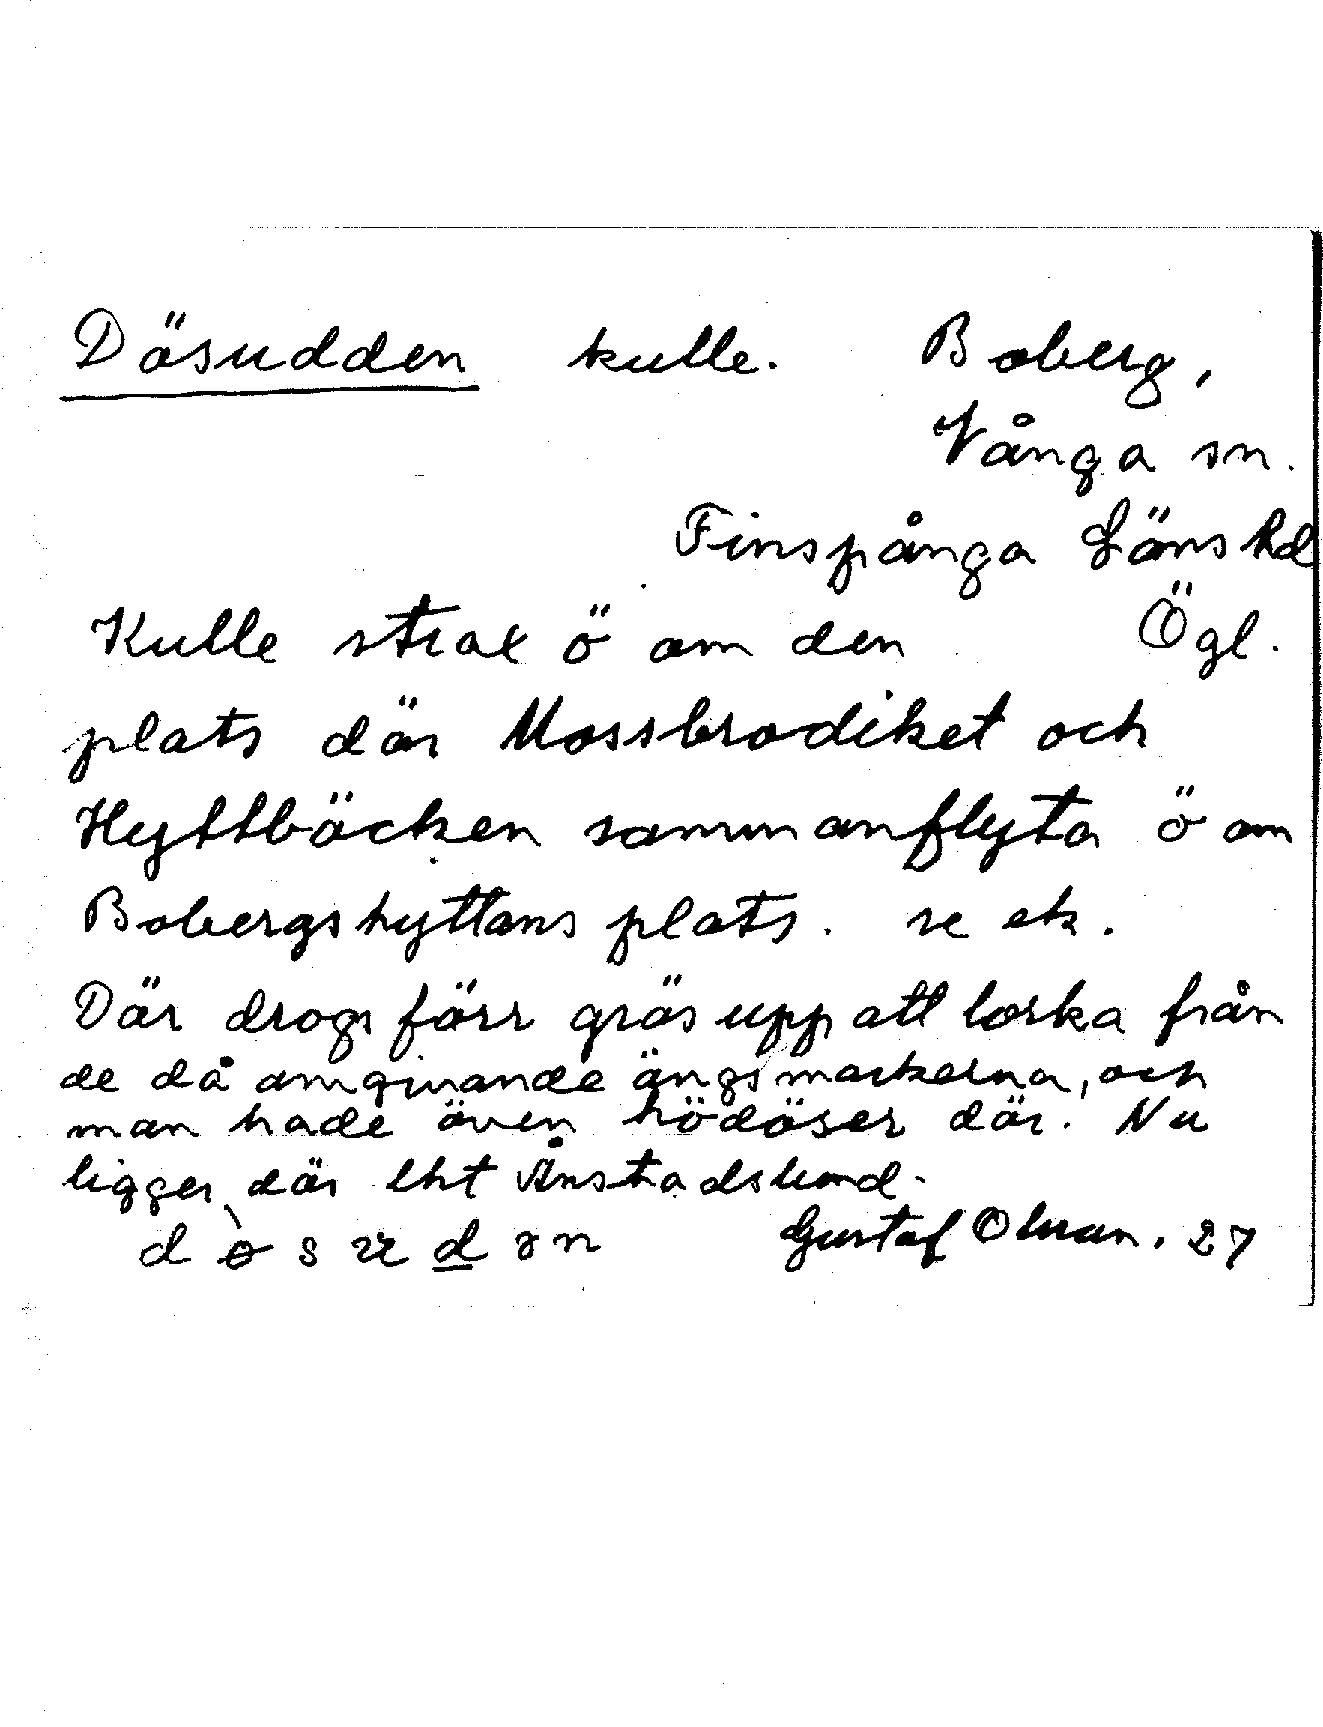 Dösudden kulle. Boberg,
Vånga sn.
Finspånga Läns hd
Kulle strax ö om den Ögl.
plats där Mossbrodiket och
Hyttbäcken sammanflyta ö om
Bobergshyttans plats. se ek.
Där drogs förr gräs upp att torka från
de då omgivande ängsmarkerna, och
man hade även hödöser där. Nu
ligger där lht Ånstadslund.
Gustaf Olsson. 27